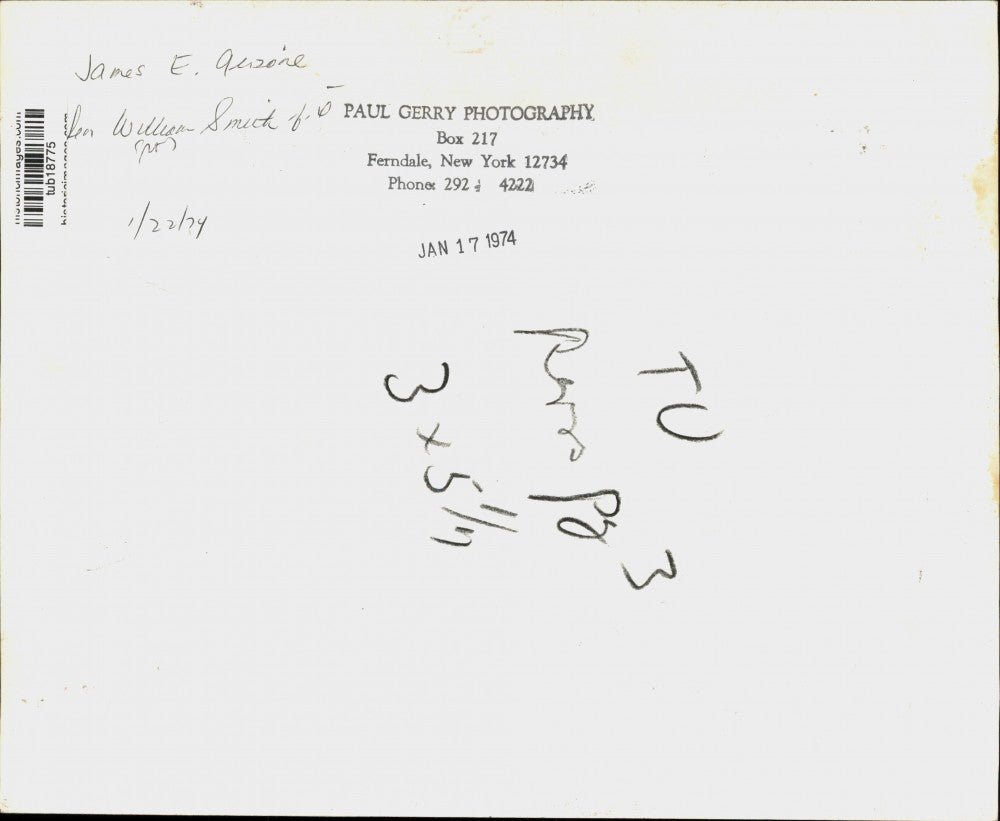 James E.
William Smith
1/22/74
historicimages.com
tub18775
historicimages.com
PAUL GERRY PHOTOGRAPHY
Box 217
Ferndale, New York 12734
Phone: 292 - 4222
JAN 17 1974
TU
pg 3
3 x 5